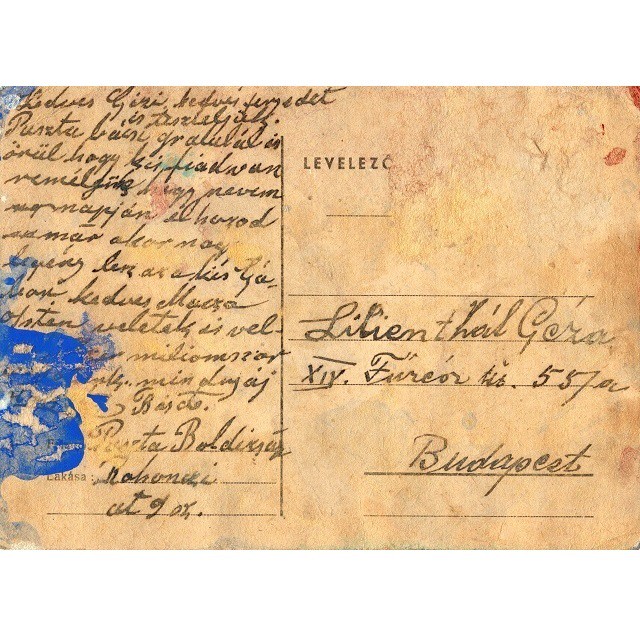 Kedves Gizi, kedves férjedet
és tiszteljük.
Puszta bácsi gratulál és
örül hogy kisfiad van
reméljük hogy nevem
napján elhozod
már akor nagy
legény lesz az a kis Gá-
bor kedves Macza
Isten veletek és vel-
miliomszor
mindnyáj
Puszta Boldizsár
Lakása: Rohonczi
út 9 sz.
LEVELEZŐ
Lilienthál Géza
XIV. Fűrész u. 55/a
Budapest